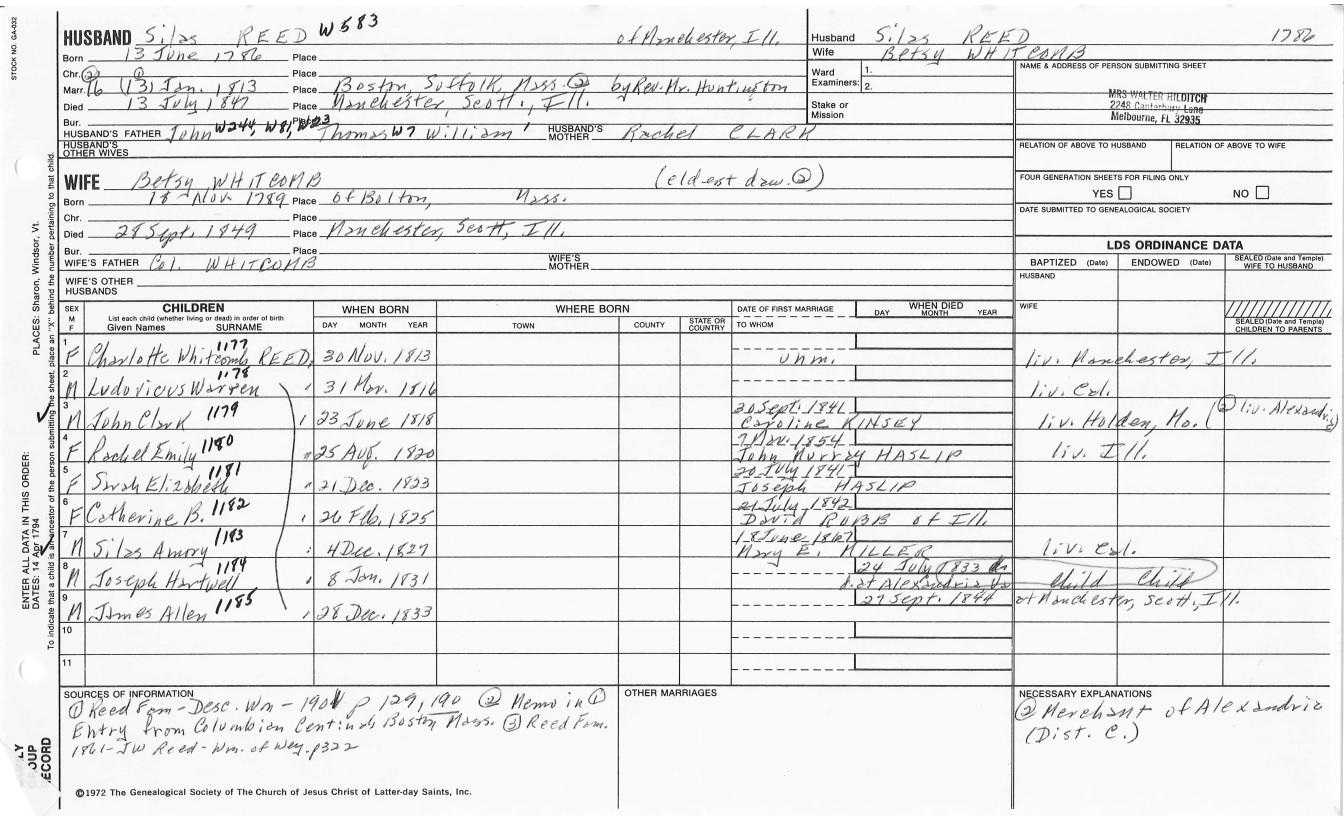 STOCK NO. GA-032
HUSBAND Silas REED W583 of Manchester, Ill.
Born 13 June 1786 Place
Chr. Place
Marr. ② 16 ① (13) Jan. 1813 Place Boston, Suffolk, Mass. ② by Rev. Mr. Huntington
Died 13 July 1847 Place Manchester, Scott, Ill.
Bur. Place
HUSBAND'S FATHER John W244, W81, W23 Thomas W7 William' HUSBAND'S MOTHER Rachel CLARK
HUSBAND'S OTHER WIVES
WIFE Betsy WHITCOMB (eldest daw. ②)
Born 18 Nov. 1789 Place of Bolton, Mass.
Chr. Place
Died 28 Sept. 1849 Place Manchester, Scott, Ill.
Bur. Place
WIFE'S FATHER Col. WHITCOMB WIFE'S MOTHER
WIFE'S OTHER HUSBANDS
Husband Silas REED 1786
Wife Betsy WHITCOMB
Ward Examiners: 1.
2.
Stake or Mission
NAME & ADDRESS OF PERSON SUBMITTING SHEET
MRS WALTER HILDITCH
2248 Canterbury Lane
Melbourne, FL 32935
RELATION OF ABOVE TO HUSBAND RELATION OF ABOVE TO WIFE
FOUR GENERATION SHEETS FOR FILING ONLY
YES NO
DATE SUBMITTED TO GENEALOGICAL SOCIETY
LDS ORDINANCE DATA
BAPTIZED (Date) ENDOWED (Date) SEALED (Date and Temple) WIFE TO HUSBAND
HUSBAND
WIFE
SEALED (Date and Temple) CHILDREN TO PARENTS
SEX M F CHILDREN WHEN BORN WHERE BORN DATE OF FIRST MARRIAGE WHEN DIED
List each child (whether living or dead) in order of birth
Given Names SURNAME DAY MONTH YEAR TOWN COUNTY STATE OR COUNTRY TO WHOM DAY MONTH YEAR
1 F Charlotte Whitcomb REED, 1177 30 Nov. 1813 unm. liv. Manchester, Ill.
2 M Ludovicus Warren 1178 31 Mar. 1816 liv. Cal.
3 M John Clark 1179 23 June 1818 20 Sept. 1841 Caroline KINSEY liv. Holden, Mo. (② liv. Alexandria)
4 F Rachel Emily 1180 25 Aug. 1820 7 Mar. 1854 John Murray HASLIP liv. Ill.
5 F Sarah Elizabeth 1181 21 Dec. 1823 20 July 1841 Joseph HASLIP
6 F Catherine B. 1182 26 Feb. 1825 21 July 1842 David ROBB of Ill.
7 M Silas Amory 1183 4 Dec. 1827 18 June 1867 Mary E. MILLER liv. Cal.
8 M Joseph Hartwell 1184 8 Jan. 1831 24 July 1833 d. at Alexandria Va Child Child
9 M James Allen 1185 28 Dec. 1833 27 Sept. 1894 at Manchester, Scott, Ill.
10
11
SOURCES OF INFORMATION
① Reed Fam - Desc. Wm - 1901 p 129, 190 ② Memo in ①
Entry from Columbian Centinal Boston Mass. ③ Reed Fam.
1861 - JW Reed - Wm. of Wey. p322
OTHER MARRIAGES
NECESSARY EXPLANATIONS
② Merchant of Alexandria
(Dist. C.)
©1972 The Genealogical Society of The Church of Jesus Christ of Latter-day Saints, Inc.
ENTER ALL DATA IN THIS ORDER:
DATES: 14 Apr 1794
PLACES: Sharon, Windsor, Vt.
To indicate that a child is an ancestor of the person submitting the sheet, place an "X" behind the number pertaining to that child.